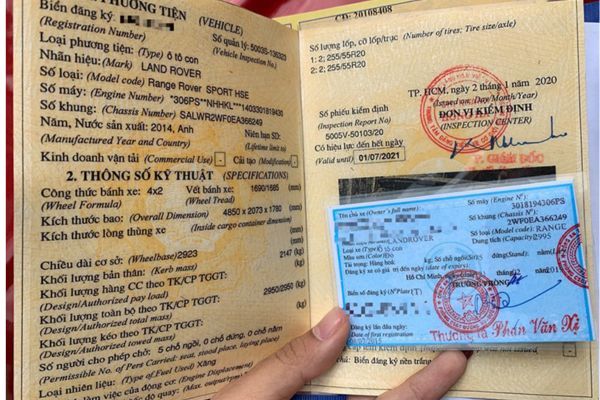 PHƯƠNG TIỆN (VEHICLE)
Biển đăng ký
(Registration Number)
Số quản lý: 5003S-136323
(Vehicle Inspection No.)
Loại phương tiện: (Type) ô tô con
Nhãn hiệu: (Mark) LAND ROVER
Số loại: (Model code) Range Rover SPORT HSE
Số máy: (Engine Number) *306PS**NHHKL***1403301819430
Số khung: (Chassis Number) SALWR2WF0EA366249
Năm, Nước sản xuất: 2014, Anh
Niên hạn SD:
(Manufactured Year and Country)
(Lifetime limit to)
Kinh doanh vận tải (Commercial Use) - Cải tạo (Modification) -
2. THÔNG SỐ KỸ THUẬT (SPECIFICATIONS)
Công thức bánh xe: 4x2 Vết bánh xe: 1690/1685 (mm)
(Wheel Formula) (Wheel Tread)
Kích thước bao: (Overall Dimension) 4850 x 2073 x 1780 (mm)
Kích thước lòng thùng xe: (Inside cargo container dimension)
(mm)
Chiều dài cơ sở: (Wheelbase) 2923 (mm)
Khối lượng bản thân: (Kerb mass) 2147 (kg)
Khối lượng hàng CC theo TK/CP TGGT:
(Design/Authorized pay load) (kg)
Khối lượng toàn bộ theo TK/CP TGGT: 2950/2950 (kg)
(Design/Authorized total mass)
Khối lượng kéo theo TK/CP TGGT:
(Design/Authorized towed mass) (kg)
Số người cho phép chở: 5 chỗ ngồi, 0 chỗ đứng, 0 chỗ nằm
(Permissible No. of Pers Carried: seat, stood place, laying place)
Loại nhiên liệu: (Type of Fuel Used) Xăng
(Engine Displacement)
CD: 20108408
Số lượng lốp, cỡ lốp/trục (Number of tires: Tire size/axle)
1: 2; 255/55R20
2: 2; 255/55R20
TP. HCM, ngày 2 tháng 1 năm 2020
(Issued on: Day/Month/Year)
Số phiếu kiểm định
(Inspection Report No)
5005V-50103/20
ĐƠN VỊ KIỂM ĐỊNH
(INSPECTION CENTER)
Có hiệu lực đến hết ngày
(Valid until) 01/07/2021
P. GIÁM ĐỐC
Tên chủ xe (Owner's full name):
Số máy (Engine N°):
3018194306PS
Số khung (Chassis N°):
2WF0EA366249
LANDROVER
Số loại (Model code): RANGE
Loại xe (Type) Ô tô con
Dung tích (Capacity): 2995
Màu sơn (Color)
Hồ Chí Minh
TRƯỞNG PHÒNG
Biển số đăng ký (N° Plate)
Đăng ký lần đầu ngày:
Date of first registration
Thượng tá Phan Văn
Biển đăng ký nền trắng